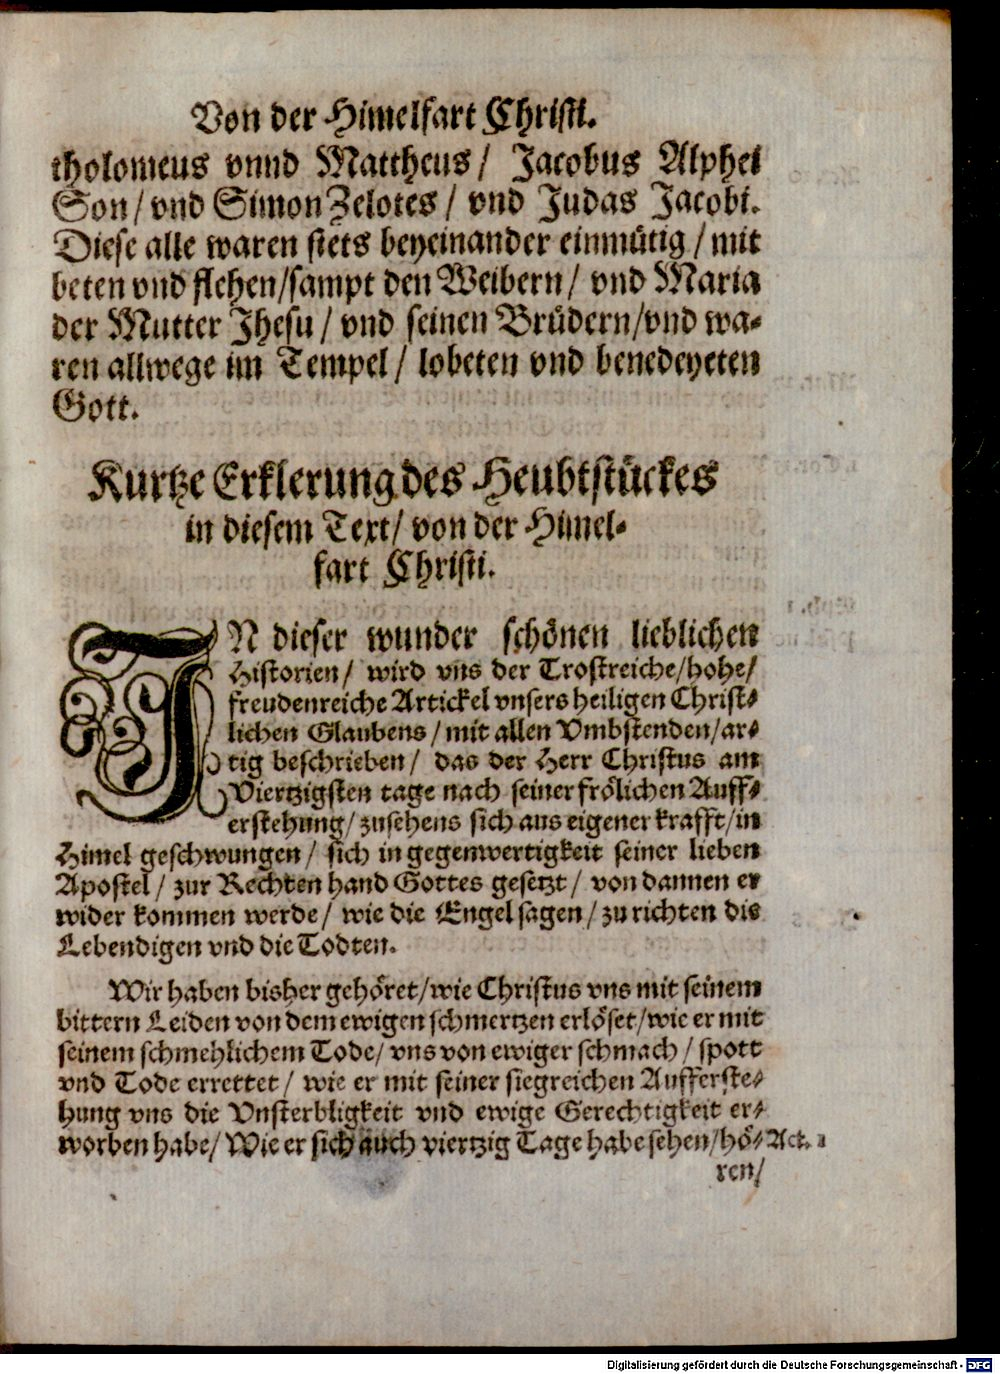 Von der Himelfart Christi.
tholomeus vnnd Mattheus/ Jacobus Alphei
Son/ vnd Simon Zelotes/ vnd Judas Jacobi.
Diese alle waren stets beyeinander einmütig/ mit
beten vnd flehen/ sampt den Weibern/ vnd Maria
der Mutter Jhesu/ vnd seinen Brüdern/ vnd wa-
ren allwege im Tempel/ lobeten vnd benedeyeten
Gott.
Kurtze Erklerung des Heubtstückes
in diesem Text/ von der Himel-
fart Christi.
IN dieser wunder schönen lieblichen
Historien/ wird vns der Trostreiche/ hohe/
freudenreiche Artickel vnsers heiligen Christ-
lichen Glaubens/ mit allen Vmbstenden/ ar-
tig beschrieben/ das der Herr Christus am
Viertzigsten tage nach seiner frölichen Auff-
erstehung/ zusehens sich aus eigener krafft/ in
Himel geschwungen/ sich in gegenwertigkeit seiner lieben
Apostel/ zur Rechten hand Gottes gesetzt/ von dannen er
wider kommen werde/ wie die Engel sagen/ zu richten die
Lebendigen vnd die Todten.
Wir haben bisher gehöret/ wie Christus vns mit seinem
bittern Leiden von dem ewigen schmertzen erlöset/ wie er mit
seinem schmehlichem Tode/ vns von ewiger schmach/ spott
vnd Tode errettet/ wie er mit seiner siegreichen Aufferste-
hung vns die Vnsterbligkeit vnd ewige Gerechtigkeit er-
worben habe/ Wie er sich auch viertzig Tage habe sehen/ hö- Act. 1
ren/
Digitalisierung gefördert durch die Deutsche Forschungsgemeinschaft - DFG